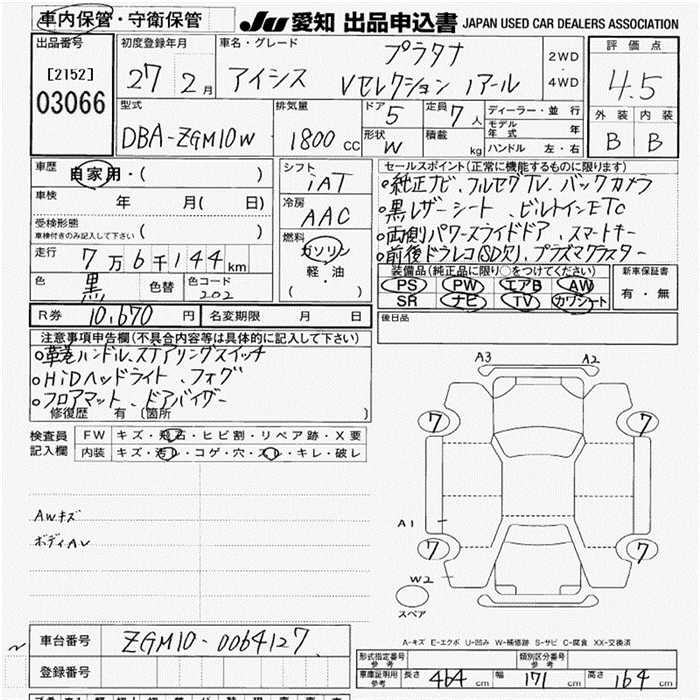 車内保管・守衛保管
JU 愛知 出品申込書 JAPAN USED CAR DEALERS ASSOCIATION
出品番号
[2152]
03066
初度登録年月
27 2月
車名・グレード
プラタナ
アイシス Vセレクション ノアール
2WD
・
4WD
評価点
4.5
外装 内装
B B
型式
DBA-ZGM10W
排気量
1800 cc
ドア 5
形状 W
定員 7 人
積載 kg
ディーラー・並行
モデル年式 年
ハンドル 左・右
車歴
自家用・( )
車検 年 月( 日)
受検形態
車検付きのみ記入して下さい ( )
走行 7万6千144km
色 黒 色替 色コード 202
シフト
iAT
冷房
AAC
燃料
ガソリン
軽・油
( )
セールスポイント(正常に機能するものに限ります)
○純正ナビ、フルセグTV、バックカメラ
○黒レザーシート、ビルトインETC
○両側パワースライドドア、スマートキー
○前後ドラレコ(SD欠)、プラズマクラスター
装備品(純正品に限り○をつけてください)
PS PW エアB AW
SR ナビ TV カワシート
新車保証書
有・無
R券 10,670 円 名変期限 月 日
後日品
注意事項申告欄(不具合内容等は具体的に記入して下さい)
○革巻ハンドル、ステアリングスイッチ
○HiDヘッドライト、フォグ
○フロアマット、ドアバイザー
修復歴 有 〔箇所 〕
検査員記入欄
FW キズ・飛石・ヒビ割・リペア跡・X要
内装 キズ・汚レ・コゲ・穴・スレ・キレ・破レ
AWキズ
ボディAU
A3 A2
7 7
A1
7 7
W2
スペア
A-キズ E-エクボ U-凹み W-補修跡 S-サビ C-腐食 XX-交換済
車台番号 ZGM10-0064127
登録番号
形式指定番号 参考 類別区分番号 参考
車庫証明用 参考 長さ 464 cm 幅 171 cm 高さ 164 cm